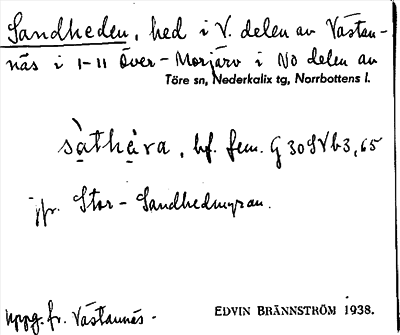 Sandheden, hed i V. delen av Västan-
näs i 1-11 Över-Morjärv i NO delen av
Töre sn, Nederkalix tg, Norrbottens l.
sàthạ̀ra, bf. fem. G 30 SV b3, 65
jfr. Stor-Sandhedmyran.
uppg. fr. Västannäs.
EDVIN BRÄNNSTRÖM 1938.